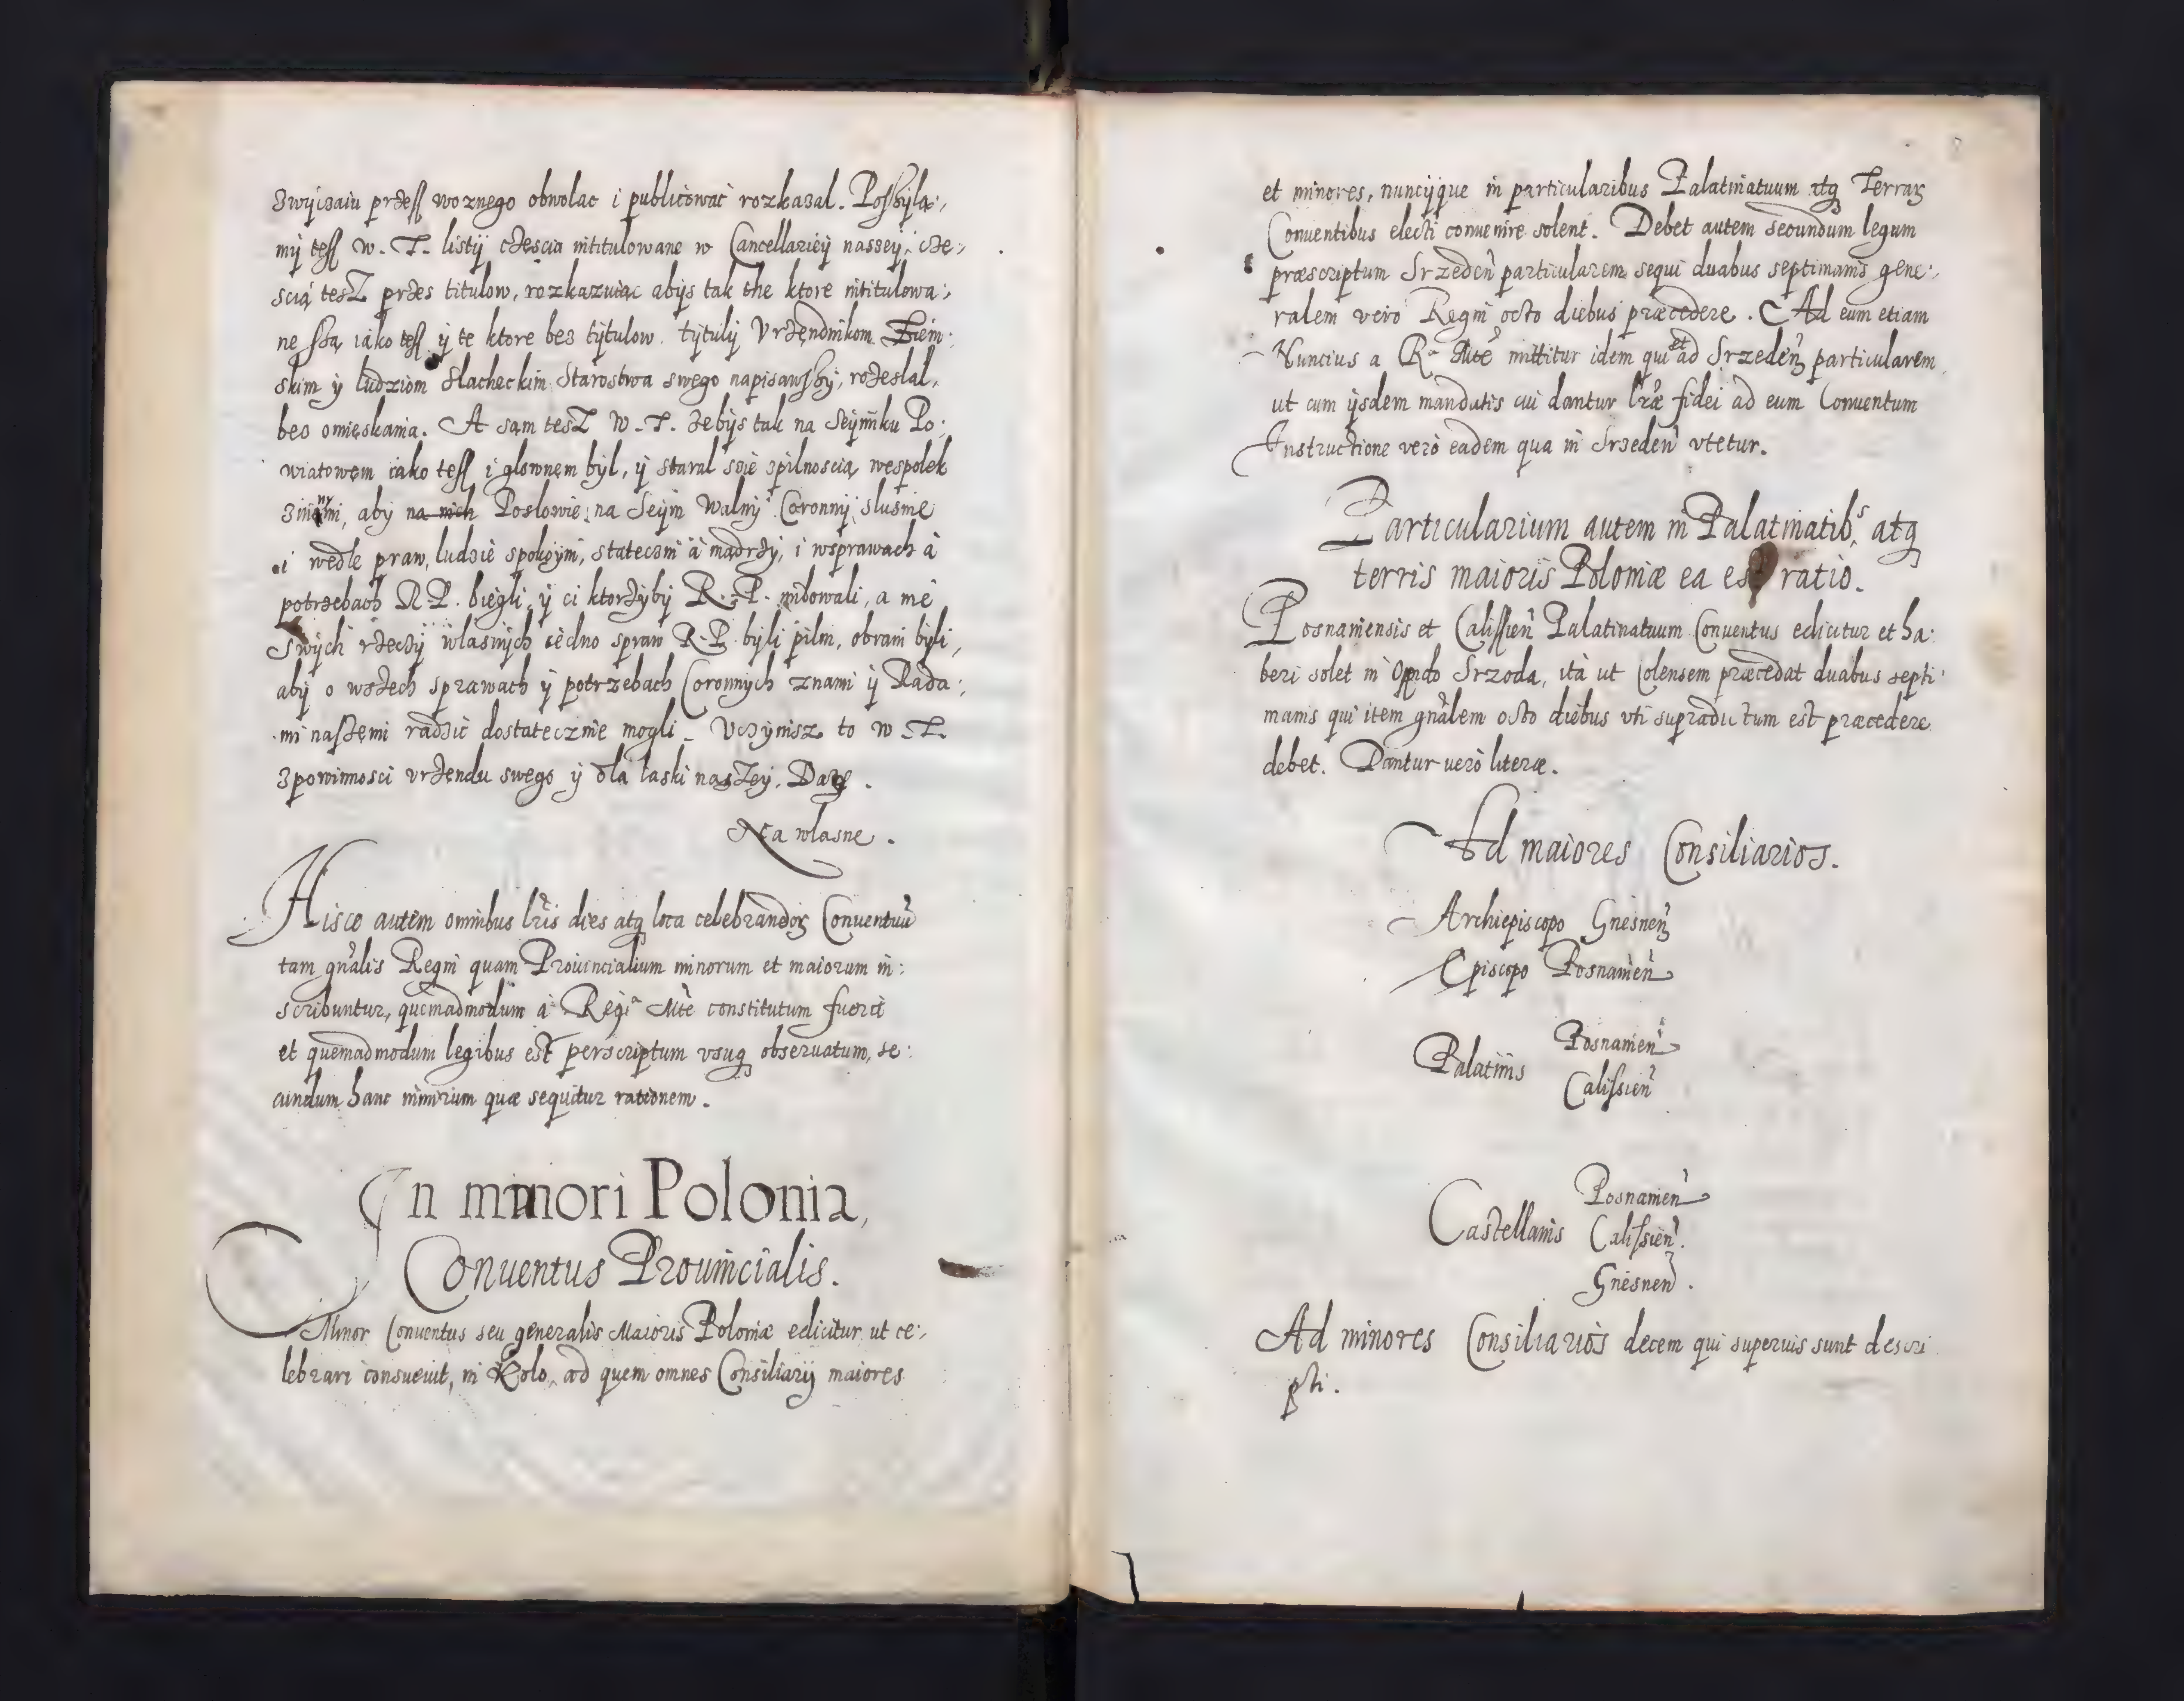 zwyczaiu przess woznego obwolac i publicowac rozkazal. Posszyla:,
my tess W. T. listy cżescia intitulowane w Cancellariey nassey, cże:,
scią tesz przes titulow, rozkazuiac abys tak the ktore intitulowa:,
ne ssą iako tess y te ktore bes tytulow tytuly Vrżendnikom Ziem:
skim y ludziom slacheckim Starostwa swego napisawszy, rożeslal,
bes omięskania. A sam tesz W. T. żebys tak na Seymiku Po:
wiatowem iako tess i glownem byl, y staral ssie zpilnoscią wespolek
zinnymi, aby na nich Poslowie na Seym Walny Coronny slusnie
i wedle praw, ludzie spokoyni, statecżni a mądrży, i wsprawach a
potrzebach R. P. biegli, y ci ktorżyby R. P. milowali, a nie
swych rżeczy wlasnych iedno spraw R. P. byli pilni, obrani byli,
aby o wszech sprawach y potrzebach Coronnych znami y Rada:,
mi naszemi radzic dostatecznie mogli. Vczynisz to W. T.
zpowinnosci vrżendu swego y dla laski naszey. Datę.
Na wlasne.
Hisce autem omnibus lris dies atq loca celebrandoꝝ Conuentuū
tam gnalis Regni quam Prouincialium minorum et maiorum in:
scribuntur, quemadmodum a Regia Mte constitutum fuerit
et quemadmodum legibus est perscriptum vsuq obseruatum, se:
cundum hanc nimirum quæ sequitur rationem.
In minori Polonia,
Conuentus Prouincialis.
Minor Conuentus seu generalis Maioris Poloniæ edicitur ut ce:,
lebrari consueuit, in Kolo, ad quem omnes Consiliarij maiores
et minores, nuncijque in particularibus Palatinatuum atq Terraꝝ
Conuentibus electi conuenire solent. Debet autem secundum legum
præscriptum Srzeden particularem sequi duabus septimanis gene:,
ralem vero Regni octo diebus præcedere. Ad eum etiam
Nuncius a Ra Mte mittitur idem qui et ad Srzeden particularem
ut cum ijsdem mandatis cui dantur lræ fidei ad eum Conuentum
Instructione vero eadem qua in Srzeden vtetur.
Particularium autem in Palatinatibs atq
terris maioris Poloniæ ea est ratio.
Posnaniensis et Calissien Palatinatuum Conuentus edicitur et ha:
beri solet in Oppido Srzoda, ita ut Colensem præcedat duabus septi:
manis qui item gnalem octo diebus vti supradictum est præcedere
debet. Dantur uero literæ.
Ad maiores Consiliarios.
Archiepiscopo Gnesnen
Episcopo Posnanien
Palatinis Posnanien
Calissien
Castellanis Posnanien
Calissien.
Gnesnen.
Ad minores Consiliarios decem qui superius sunt descri
pti.